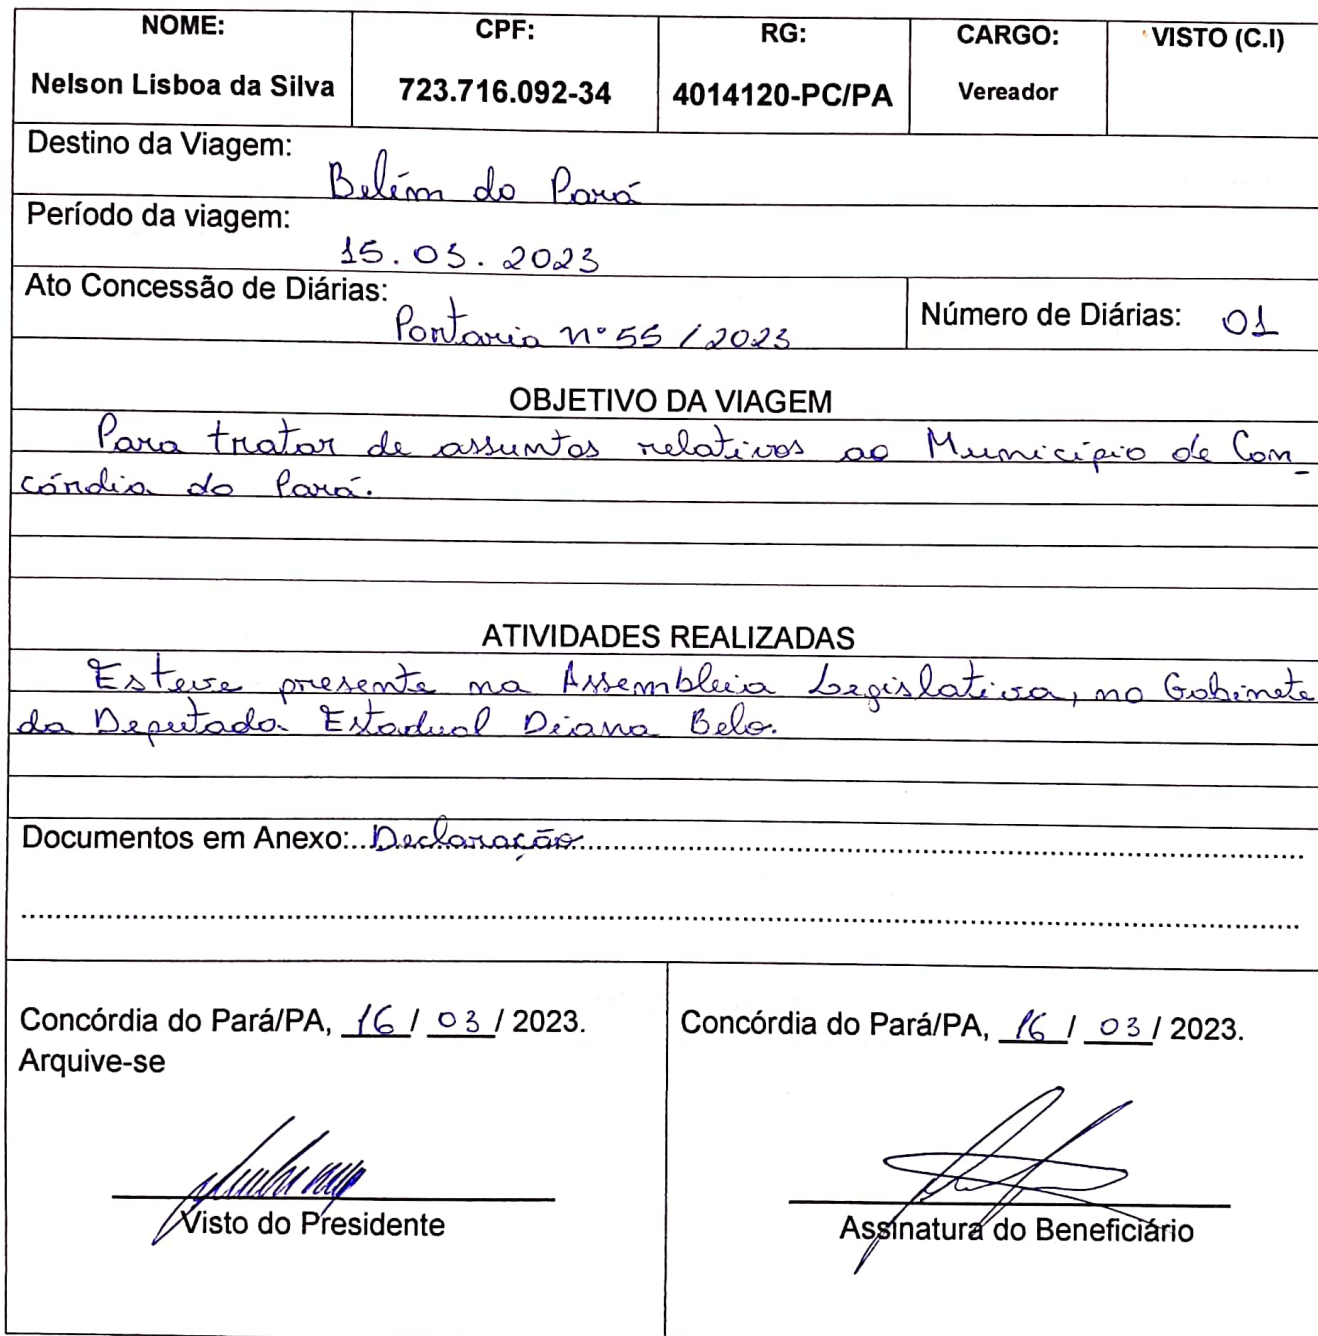 NOME: CPF: RG: CARGO: VISTO (C.I)
Nelson Lisboa da Silva 723.716.092-34 4014120-PC/PA Vereador
Destino da Viagem:
Belém do Pará
Período da viagem:
15.03.2023
Ato Concessão de Diárias:
Portaria nº 55 / 2023 Número de Diárias: 01
OBJETIVO DA VIAGEM
Para tratar de assuntos relativos ao Município de Con-
córdia do Pará.
ATIVIDADES REALIZADAS
Esteve presente na Assembleia Legislativa, no Gabinete
da Deputada Estadual Diana Belo.
Documentos em Anexo:..Declaração
Concórdia do Pará/PA, 16 / 03 / 2023. Concórdia do Pará/PA, 16 / 03 / 2023.
Arquive-se
Visto do Presidente Assinatura do Beneficiário